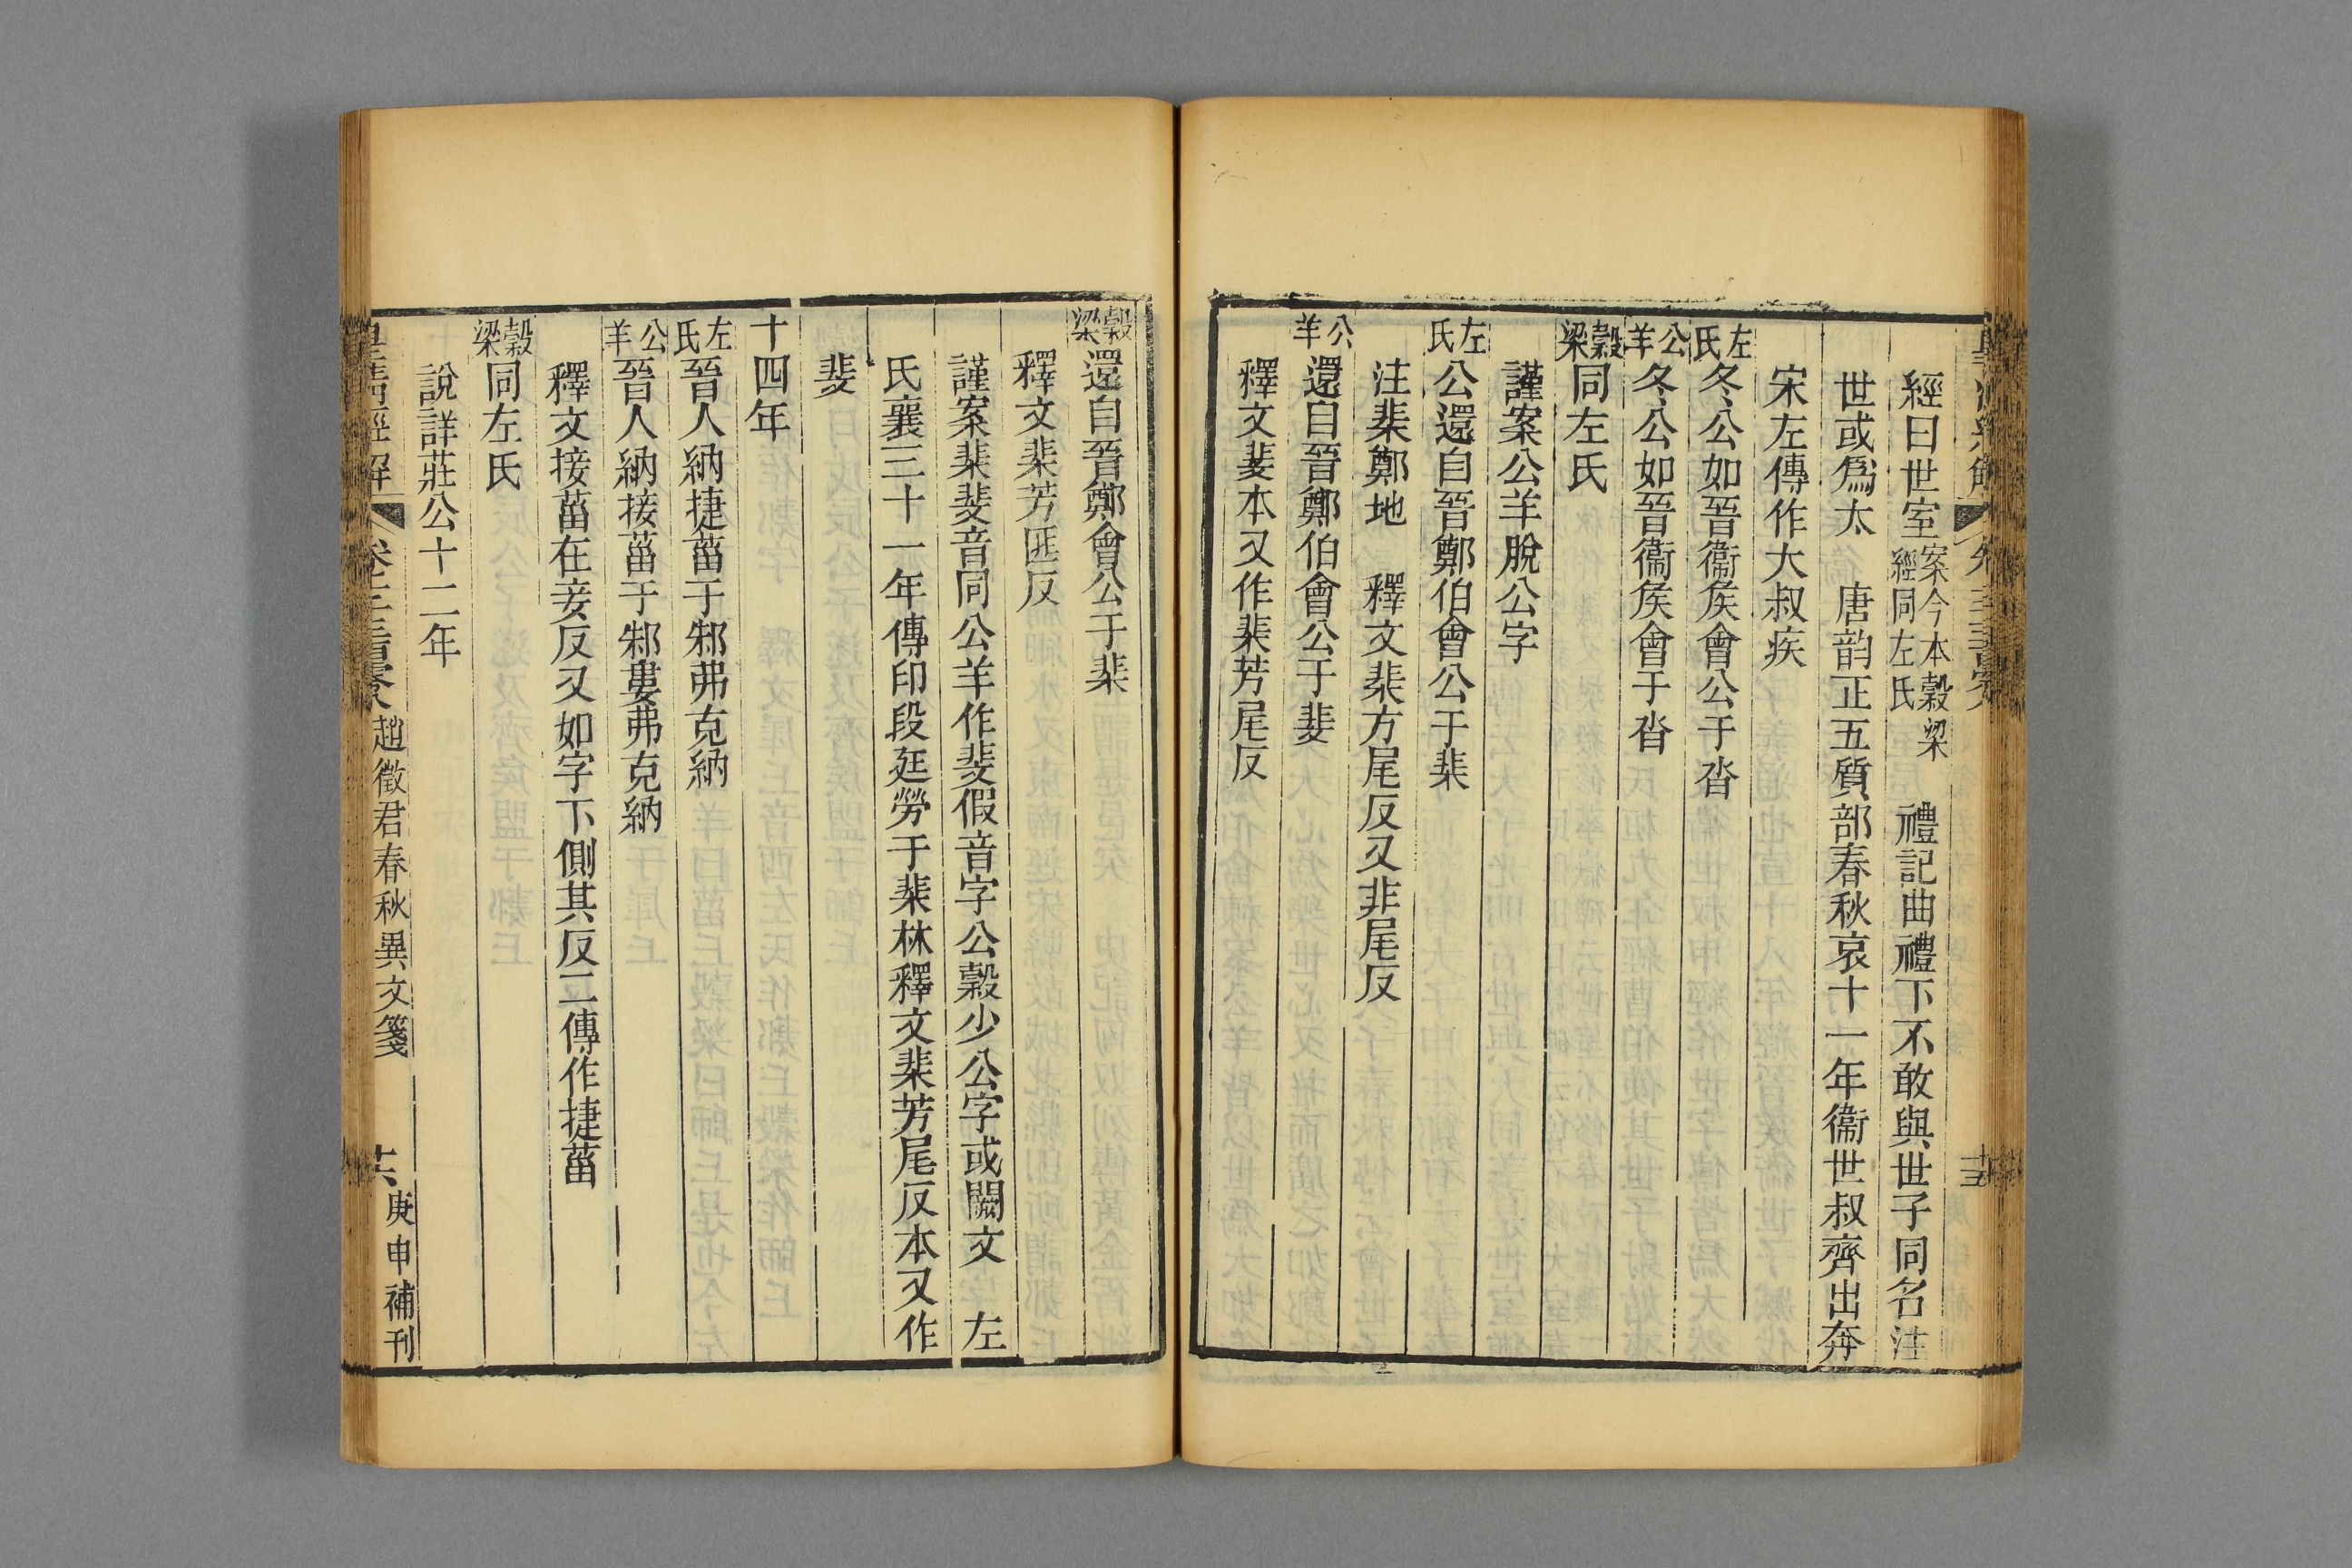 經曰世室案今本穀梁經同左氏　禮記曲禮下不敢與世子同名注
世或爲太　唐韵正五質部春秋哀十一年衞世叔齊出奔
宋左傳作大叔疾
左氏冬公如晉衞侯會公于沓
公羊冬公如晉衞侯會于沓
穀梁同左氏
謹案公羊脫公字
左氏公還自晉鄭伯會公于棐
注棐鄭地　釋文棐方尾反又非尾反
公羊還自晉鄭伯會公于斐
釋文斐本又作棐芳尾反
穀梁還自晉鄭會公于棐
釋文棐芳匪反
謹案棐斐音同公羊作斐假音字公穀少公字或闕文　左
氏襄三十一年傳印段廷勞于棐林釋文棐芳尾反本又作
斐
十四年
左氏晉人納捷菑于邾弗克納
公羊晉人納接菑于邾婁弗克納
釋文接菑在妾反又如字下側其反二傳作捷菑
穀梁同左氏
說詳莊公十二年
皇淸經解　趙徵君春秋異文箋　庚申補刊